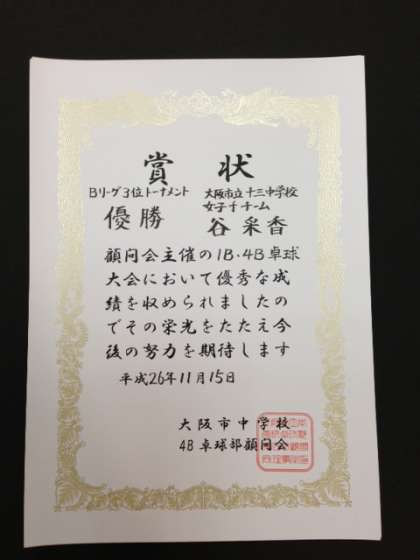 賞状
Bリーグ3位トーナメント
優勝
大阪市立十三中学校
女子チーム
谷采香
顧問会主催の1B・4B卓球
大会において優秀な成
績を収められましたの
でその栄光をたたえ今
後の努力を期待します
平成26年11月15日
大阪市中学校
4B卓球部顧問会